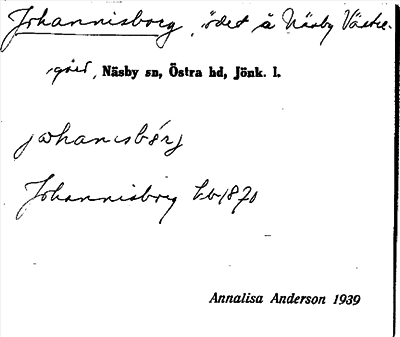 Johannisborg, ödet å Näsby Västre-
gård, Näsby sn, Östra hd, Jönk. l.
johanısbórj
Johannisborg Lb 1870
Annalisa Anderson 1939